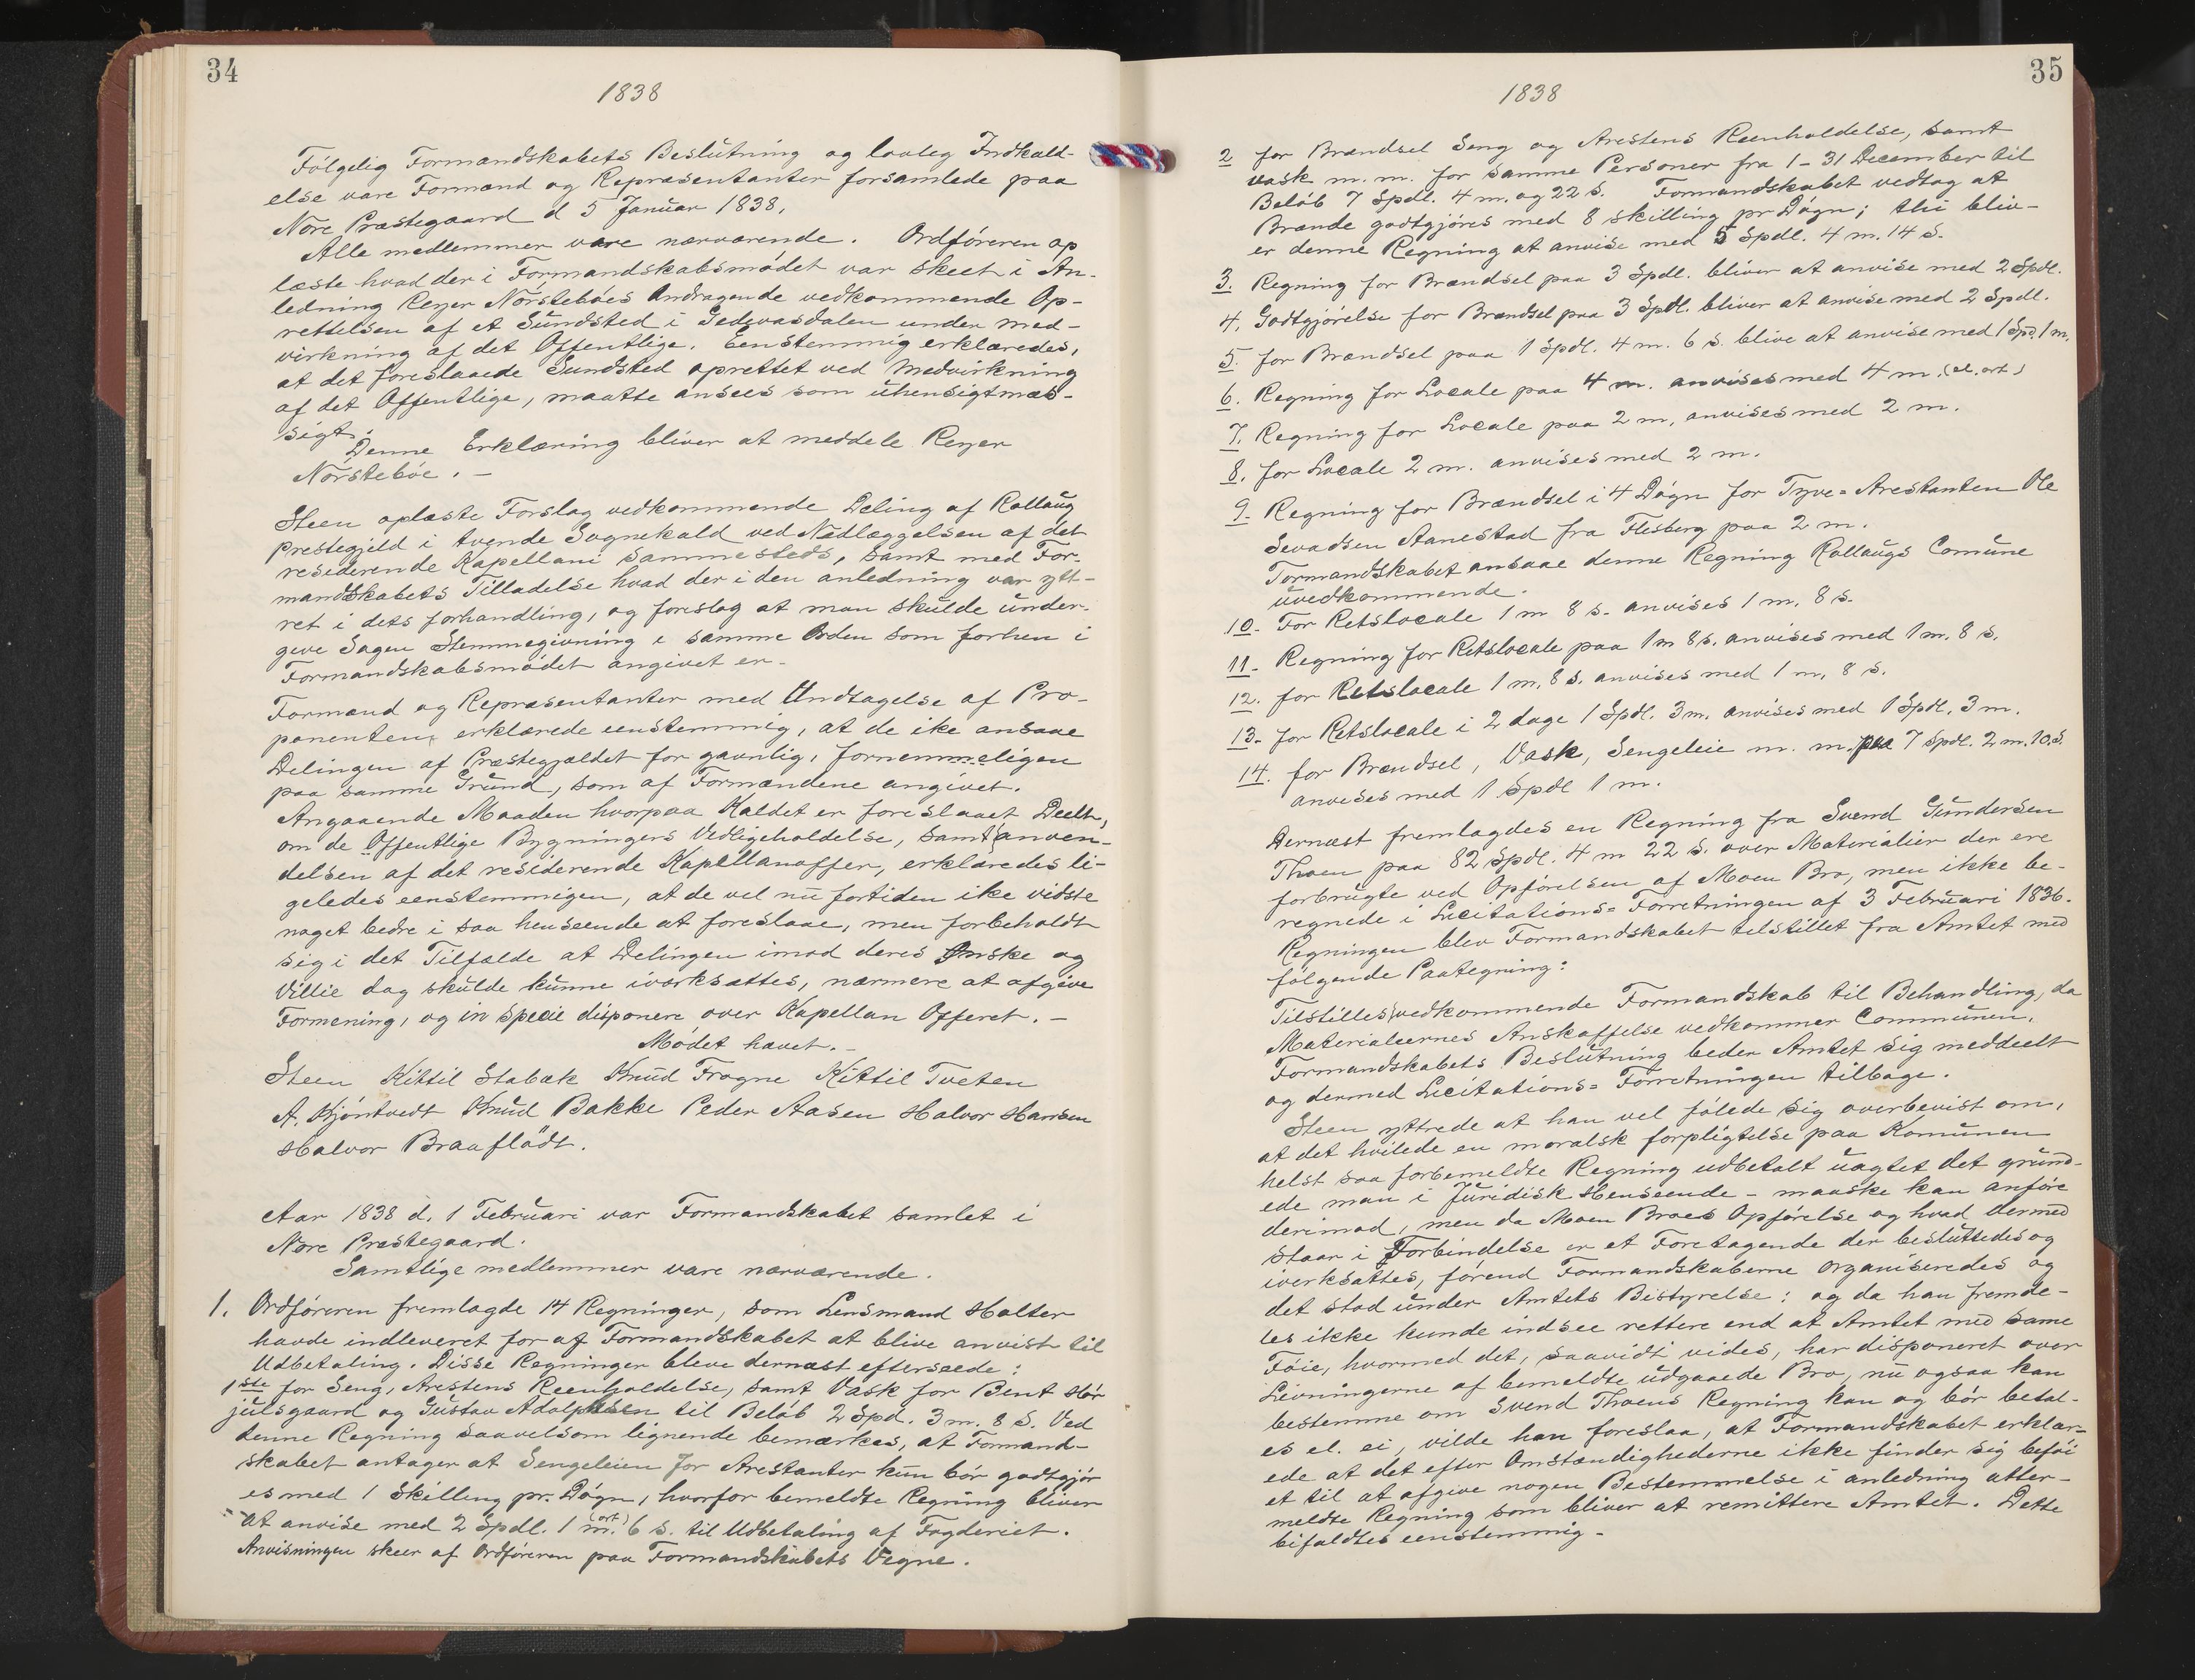 34
1838
Følgelig Formandskabets Beslutning og lovleg Indkald-
else vare Formænd og Repræsentanter forsamlede paa
Nore Præstegaard d 5 Januar 1838.
Alle medlemmer vare nærværende. Ordføreren op
læste hvad der i Formandskabsmødet var skeet i An-
ledning Reyer Nørstebøes Andragende vedkommende Op-
rettelsen af et Sundsted i Gedevasdalen under med-
virkning af det Offentlige. Eenstemmig erklæredes,
at det foreslaaede Sundsted oprettet ved Medvirkning
af det Offentlige, maatte ansees som uhensigtmæs-
sigt.
Denne Erklæring bliver at meddele Reyer
Nørstebøe. -
Steen oplæste Forslag vedkommende Deling af Rollaug
Prestegjeld i tvende Sognekald ved Nedlæggelsen af det
residerende Kapellani sammesteds, samt med For-
mandskabets Tilladelse hvad der i den anledning var ytt-
ret i dets forhandling, og foreslog at man skulde under-
give Sagen Stemmegivning i samme Orden som forhen i
Formandskabsmødet angivet er -
Formænd og Repræsentanter med Undtagelse af Pro-
ponenten, erklærede eenstemmig, at de ike ansaae
Delingen af Præstegjældet for gavnlig, fornemmeligen
paa samme Grund, som af Formændene angivet.
Angaaende Maaden hvorpaa Kaldet er foreslaaet Deelt,
om de Offentlige Bygningers Vedligeholdelse, samt anven-
delsen af det residerende Kapellanoffer, erklæredes li-
geledes eenstemmigen, at de vel nu fortiden ike vidste
noget bedre i saa henseende at foreslaae, men forbeholdt
sig i det Tilfælde at Delingen imod deres Ønske og
Villie dog skulde kunne iværksættes, nærmere at afgive
Formening, og in specie disponere over Kapellan Offeret. -
Mødet hævet. -
Steen Kittil Stabæk Knud Frogne Kittil Tveten
A. Kjøntvedt Knud Bakke Peder Aasen Halvor Hansen
Halvor Braaflådt.
Aar 1838 d. 1 Februari var Formandskabet samlet i
Nore Præstegaard.
Samtlige medlemmer vare nærværende.
1. Ordføreren fremlagde 14 Regninger, som Lensmand Halter
havde indleveret for af Formandskabet at blive anvist til
Udbetaling. Disse Regninger bleve dernæst efterseede:
1ste for Seng, Arestens Reenholdelse, samt Vask for Bent Hør
julsgaard og Gustav Adolphsen til Beløb 2 Spd. 3 m. 8 S. Ved
denne Regning saavelsom lignende bemærkes, at Formand-
skabet antager at Sengeleien for Arestanter kun bør godtgjør
es med 1 Skilling pr. Døgn, hvorfor bemeldte Regning bliver
at anvise med 2 Spdl. 1 m. (ort) 6 s. til Udbetaling af Fogderiet.
Anvisningen skeer af Ordføreren paa Formandskabets Vegne.
35
1838
2 for Brændsel Seng og Arestens Reenholdelse, samt
vask m. m. for samme Personer fra 1-31 December til
Beløb 7 Spdl. 4 m. og 22 s. Formandskabet vedtog at
Brænde godtgjøres med 8 skilling pr Døgn; thi bliv-
er denne Regning at anvise med 5 Spdl. 4 m. 14 s.
3. Regning for Brændsel paa 3 Spdl. bliver at anvise med 2 Spdl.
4. Godtgjørelse for Brændsel paa 3 Spdl. bliver at anvise med 2 Spdl.
5. for Brændsel paa 1 Spdl. 4 m. 6 s. blive at anvise med 1 Spd. 1 m.
6. Regning for Locale paa 4 m. anvises med 4 m. (el. ort)
7. Regning for Locale paa 2 m, anvises med 2 m.
8. for Locale 2 m. anvises med 2 m.
9. Regning for Brændsel i 4 Døgn for Tyve=Arestanten Ole
Sevadsen Aanestad fra Flesberg paa 2 m.
Formandskabet ansaae denne Regning Rollaugs Comune
uvedkommende.
10. For Retslocale 1 m 8 s. anvises 1 m. 8 s.
11. Regning for Retslocale paa 1 m 8 s. anvises med 1 m. 8 s.
12. for Retslocale 1 m. 8 s. anvises med 1 m. 8 s.
13. for Retslocale i 2 dage 1 Spdl. 3 m. anvises med 1 Spdl. 3 m.
14. for Brændsel, Vask, Sengeleie m. m. paa 7 Spdl. 2 m. 10 S.
anvises med 1 Spdl 1 m.
Dernæst fremlagdes en Regning fra Svend Gundersen
Thoen paa 82 Spdl. 4 m 22 s. over Materialier der ere
forbrugte ved Opførelsen af Moen Bro, men ikke be-
regnede i Licitations=Forretningen af 3 Februari 1836.
Regningen blev Formandskabet tilstillet fra Amtet med
følgende Paategning:
Tilstilles vedkommende Formandskab til Behandling, da
Materialeernes Anskaffelse vedkommer Communen.
Formandskabets Beslutning beder Amtet sig meddeelt
og dermed Licitations=Forretningen tilbage.
Steen yttrede at han vel følede sig overbevist om,
at det hvilede en moralsk forpligtelse paa Komunen
helst saa forbemeldte Regning udbetalt uagtet det grund-
ede man i Juridisk Henseende - maaske kan anføre
derimod, men da Moen Broes Opførelse og hvad dermed
staar i Forbindelse er et Foretagende der besluttedes og
iverksattes, førend Formandskaberne organiseredes og
det stod under Amtets Bistyrelse: og da han fremde-
les ikke kunde indsee rettere end at Amtet med same
Føie, hvormed det, saavidt vides, har disponeret over
Levningerne af bemeldte udgaaede Bro, nu ogsaa kan
bestemme om Svend Thoens Regning kan og bør betal-
es el. ei, vilde han foreslaa, at Formandskabet erklær-
ede at det efter Omstændighederne ikke finder sig beføi
et til at afgive nogen Bestemmelse i anledning atter-
meldte Regning som bliver at remittere Amtet. Dette
bifaldtes eenstemmig -